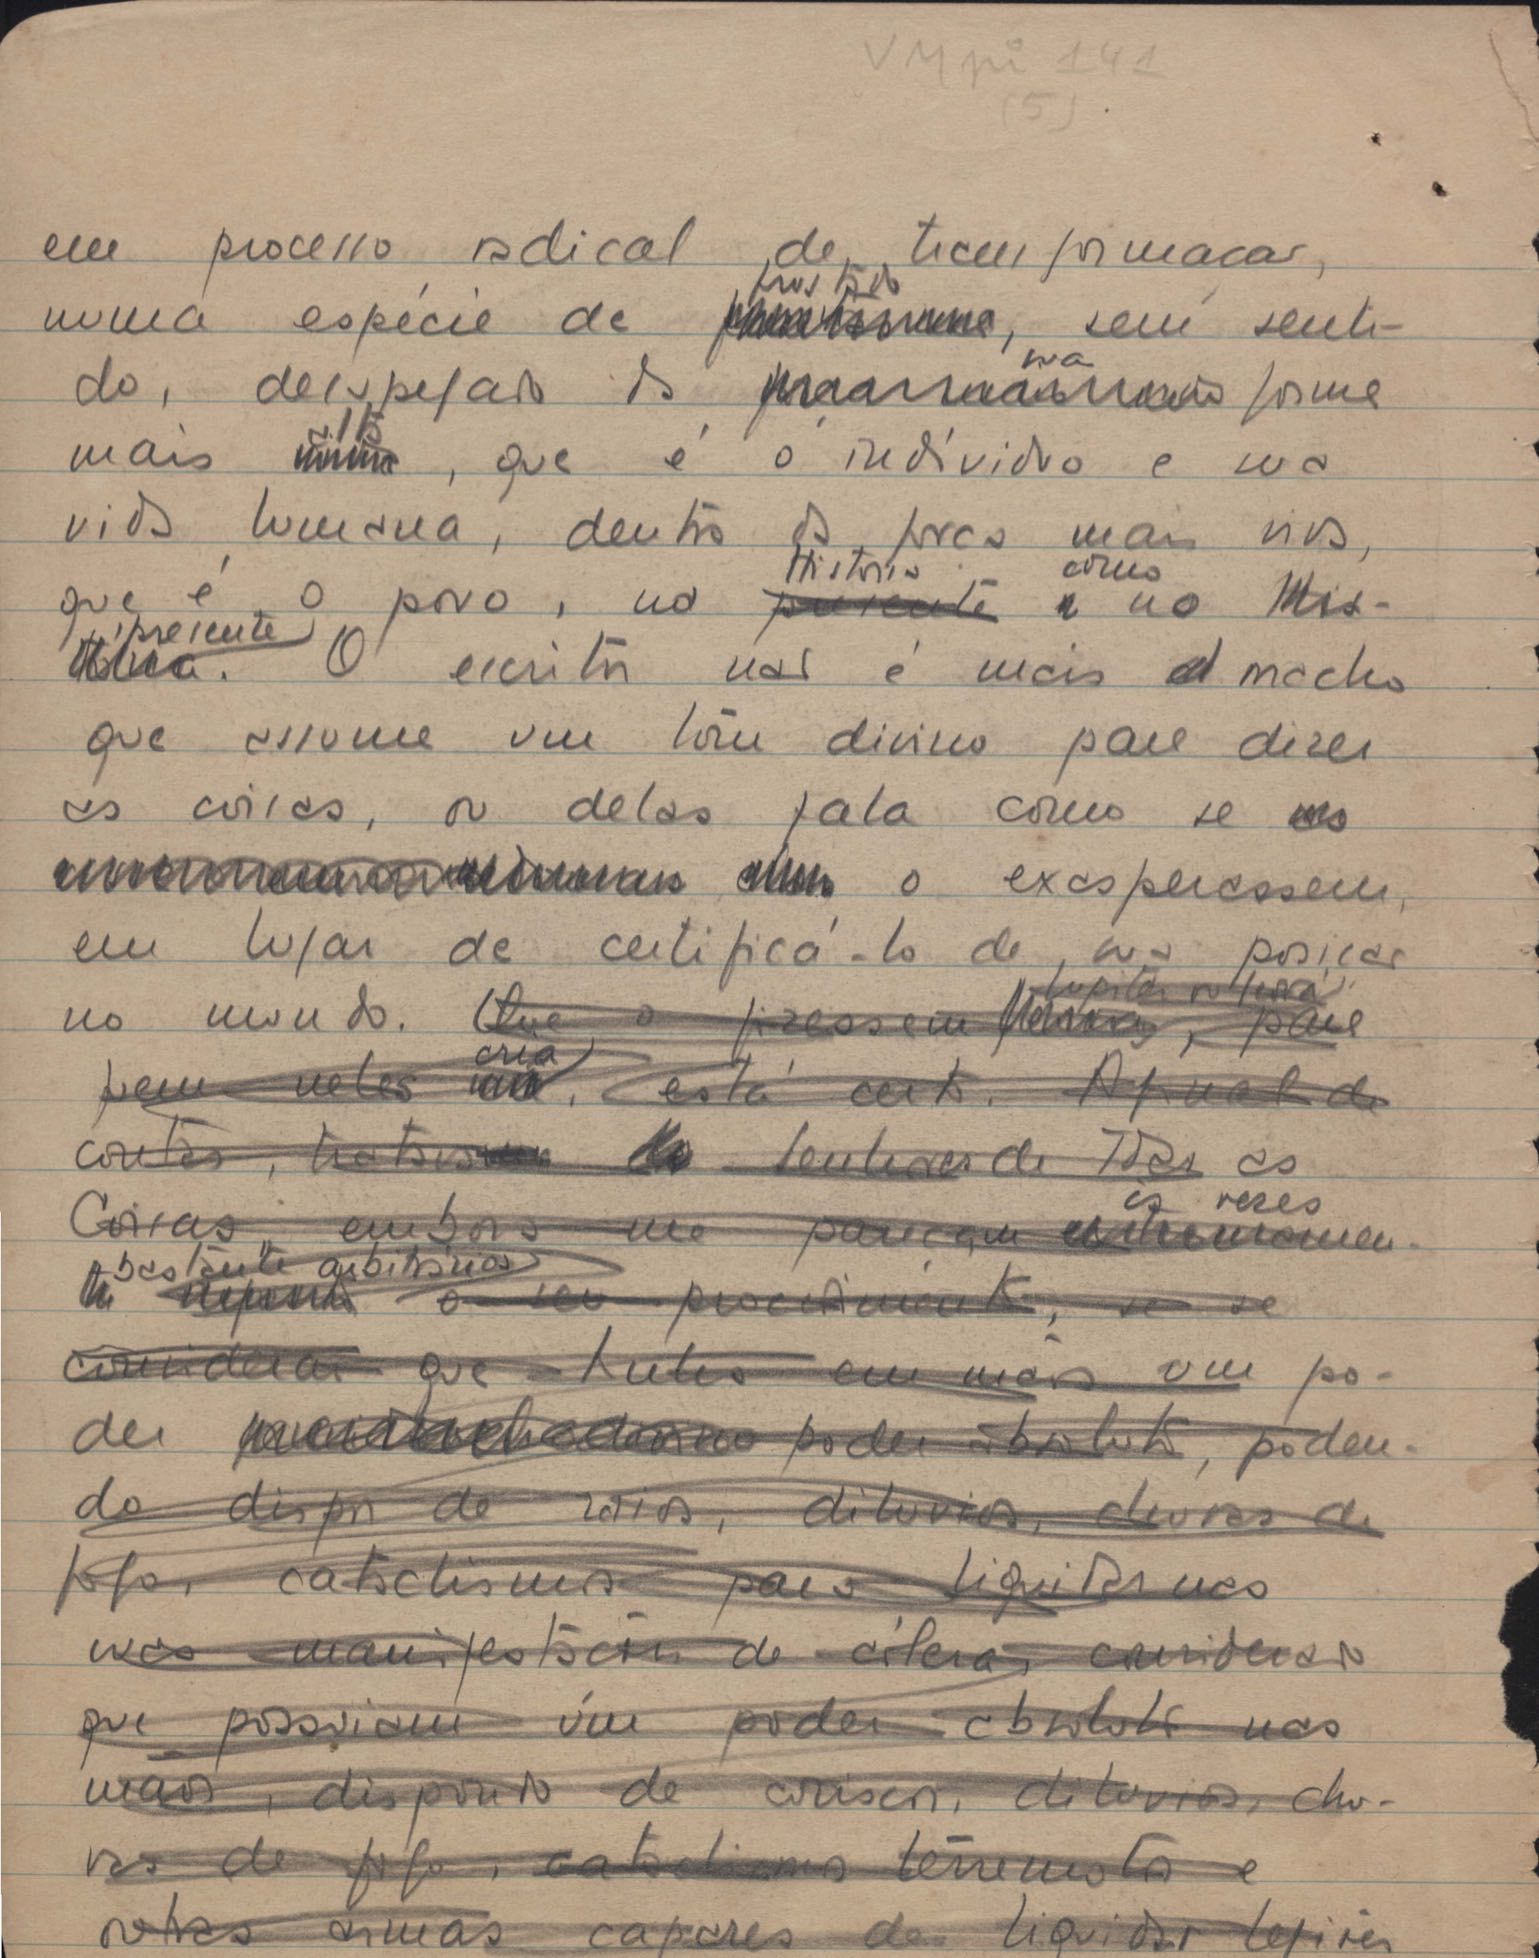 VMpi 141
(5)
em processo radical de transformaçao,
numa espécie de prostido, sem senti-
do, despejado da sua forma
mais alta, que é o indívíduo e sua
vida humana, dentro da força mais viva,
que é o povo, na História como no
presente. O escritor nao é mais o macho
que assume um tom divino para dizer
as coisas, ou delas fala como se
o exasperassem,
em lugar de certificá-lo de sua posiçao
no mundo. Que o fizessem Jupiter ou Jeová, para
quem neles cria, está certo. Afinal de
contas, tratava de senhores de todas as
Coisas, embora me pareçam às vezes
bastante arbitrários o seu procedimento, se se
considerar que tinha em mãos um po-
der poder absoluto, poden-
do dispor de raios, dilúvios, chuvas de
fogo, cataclismos para liquidar nas
suas manifestaçõis de cólera, considerado
que possuiam um poder absoluto nas
maos, dispondo de coriscos, dilúvios, chu-
vas de fogo, cataclismos terremotos e
outras armas capazes de liquidar legiões